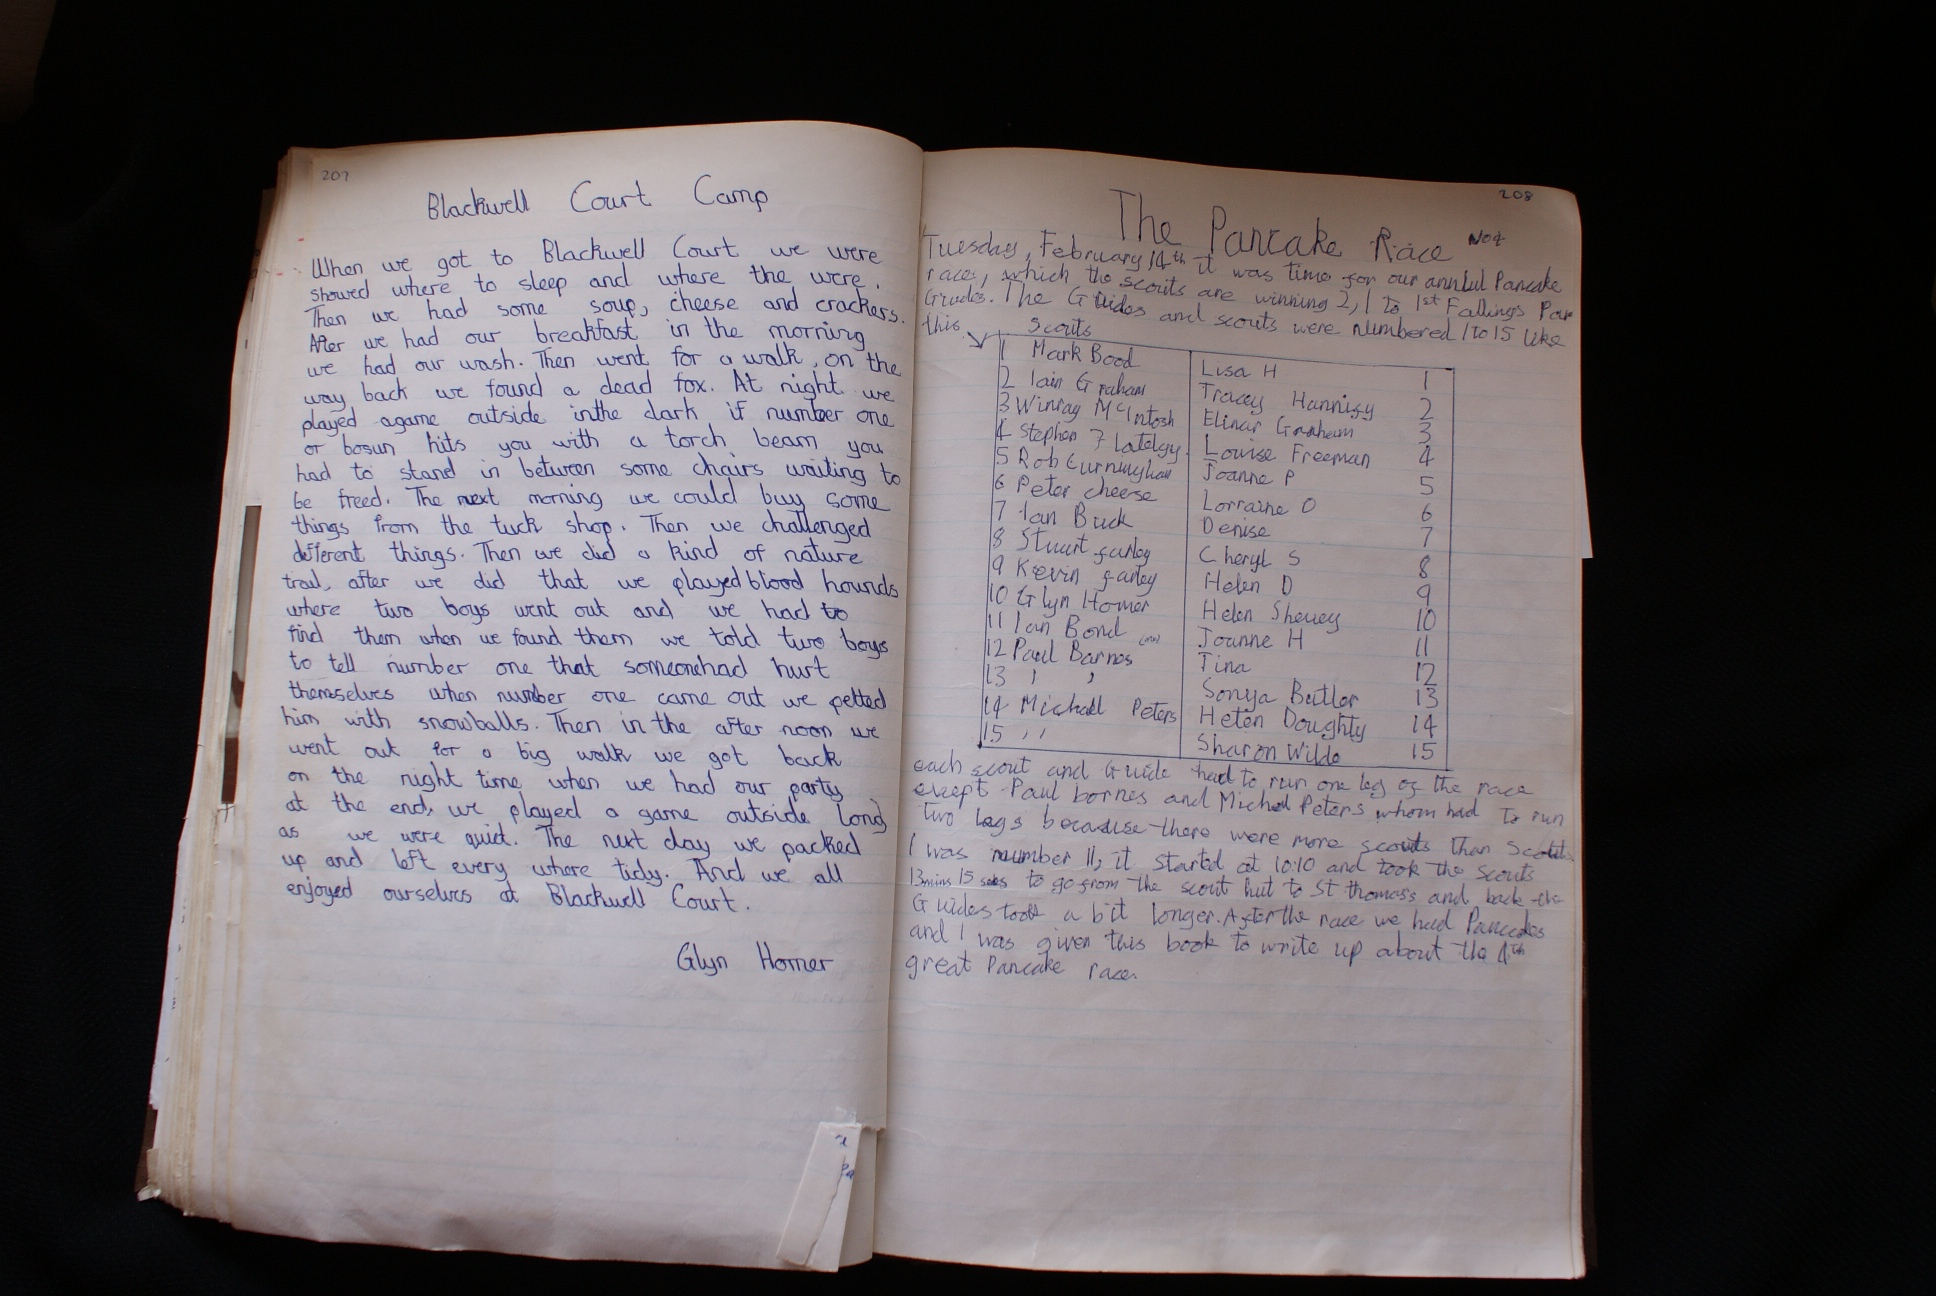 207
Blackwell Court Camp
When we got to Blackwell Court we were
showed where to sleep and where the were.
Then we had some soup, cheese and crackers.
After we had our breakfast in the morning
we had our wash. Then went for a walk, on the
way back we found a dead fox. At night we
played agame outside inthe dark if number one
or bosun hits you with a torch beam you
had to stand in between some chairs waiting to
be freed. The next morning we could buy some
things from the tuck shop. Then we challenged
different things. Then we did a kind of nature
trail, after we did that we played blood hounds
where two boys went out and we had to
find them when we found them we told two boys
to tell number one that someonehad hurt
themselves when number one came out we petted
him with snowballs. Then in the after noon we
went out for a big walk we got back
on the night time, when we had our party
at the end, we played a game outside long
as we were quiet. The next day we packed
up and left every where tidy. And we all
enjoyed ourselves at Blackwell Court.
Glyn Homer
208
The Pancake Race No4
Tuesday, February 14th it was time for our annlul Pancake
race, which the scouts are winning 2,1 to 1st Fallings Par
Grudes. The Guides and scouts were numbered 1 to 15 like
this scouts
1 Mark Bood Lisa H 1
2 Iain Graham Tracey Hannigy 2
3 Winray McIntosh Elinar Graham 3
4 Stephen Louise Freeman 4
5 Rob Curninghan Joanne P 5
6 Peter cheese Lorraine O 6
7 Ian Buck Denise 7
8 Stuart farley Cheryl S 8
9 Kevin farley Helen D 9
10 Glyn Homer Helen 10
11 Ian Bond (me) Joanne H 11
12 Paul Barnes Tina 12
13 , , Sonya Butler 13
14 Michall Peters Helen Doughty 14
15 , , Sharon Wilde 15
each scout and Guide had to run one leg of the race
except Paul bornes and Michel Peters whom had to run
two legs becasuse there were more scouts than scouts
I was number 11, it started at 10:10 and took the scouts
13mins 15 secs to go from the scout hut to St thomas's and back the
Guides took a bit longer. After the race we had Pancakes
and I was given this book to write up about the 4th
great Pancake race.